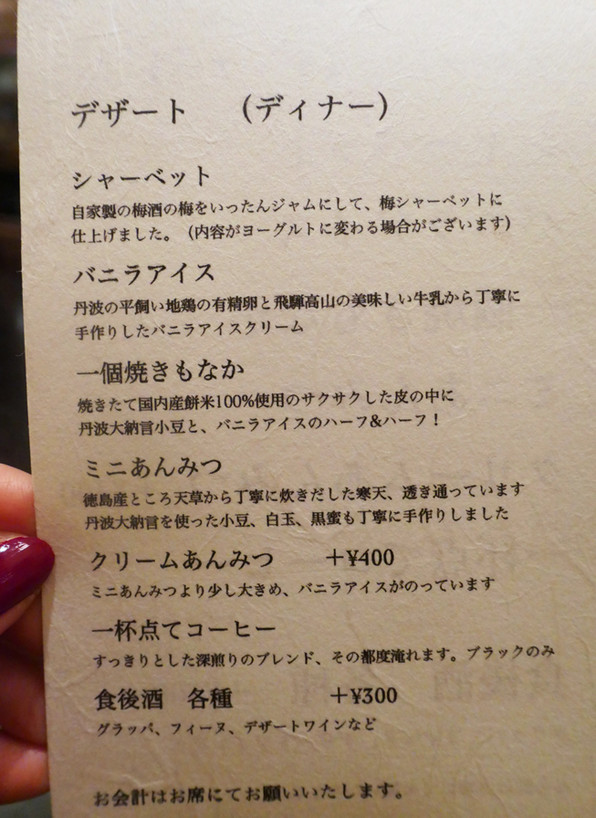 デザート　（ディナー）
シャーベット
自家製の梅酒の梅をいったんジャムにして、梅シャーベットに
仕上げました。（内容がヨーグルトに変わる場合がございます）
バニラアイス
丹波の平飼い地鶏の有精卵と飛騨高山の美味しい牛乳から丁寧に
手作りしたバニラアイスクリーム
一個焼きもなか
焼きたて国内産餅米100%使用のサクサクした皮の中に
丹波大納言小豆と、バニラアイスのハーフ&ハーフ！
ミニあんみつ
徳島産ところ天草から丁寧に炊きだした寒天、透き通っています
丹波大納言を使った小豆、白玉、黒蜜も丁寧に手作りしました
クリームあんみつ　＋¥400
ミニあんみつより少し大きめ、バニラアイスがのっています
一杯点てコーヒー
すっきりとした深煎りのブレンド、その都度淹れます。ブラックのみ
食後酒　各種　＋¥300
グラッパ、フィーヌ、デザートワインなど
お会計はお席にてお願いいたします。